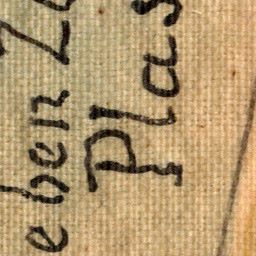 eben Z
Plas